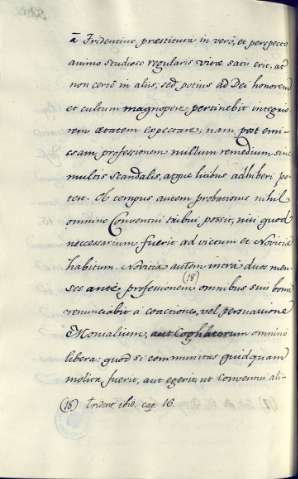 a Tridentino præstitura in vero, et perspecto
animo studiose regularis vitæ satis erit, at
non certe in aliis, sed potius ad Dei honorem
et cultum magnopere pertinebit integrio
rem ætatem expectare; nam post emis
sam professionem nullum remedium sine
multis scandalis, atque litibus adhiberi po
test. Ob tempus autem probationis nihil
omnino Conventui tribui possit, nisi quod
necessarium fuerit ad victum et Novitiæ
habitum. Novitia autem intra duos men
ses ante (18) professionem omnibus suis bonis
renunciabit a coactione, vel persuasione
Monialium, aut Cognatorum omnino
libera: quod si communitas quidquam
molita fuerit, aut egerit ut Conventui ali-
(18) Trident. ibid. cap. 16.